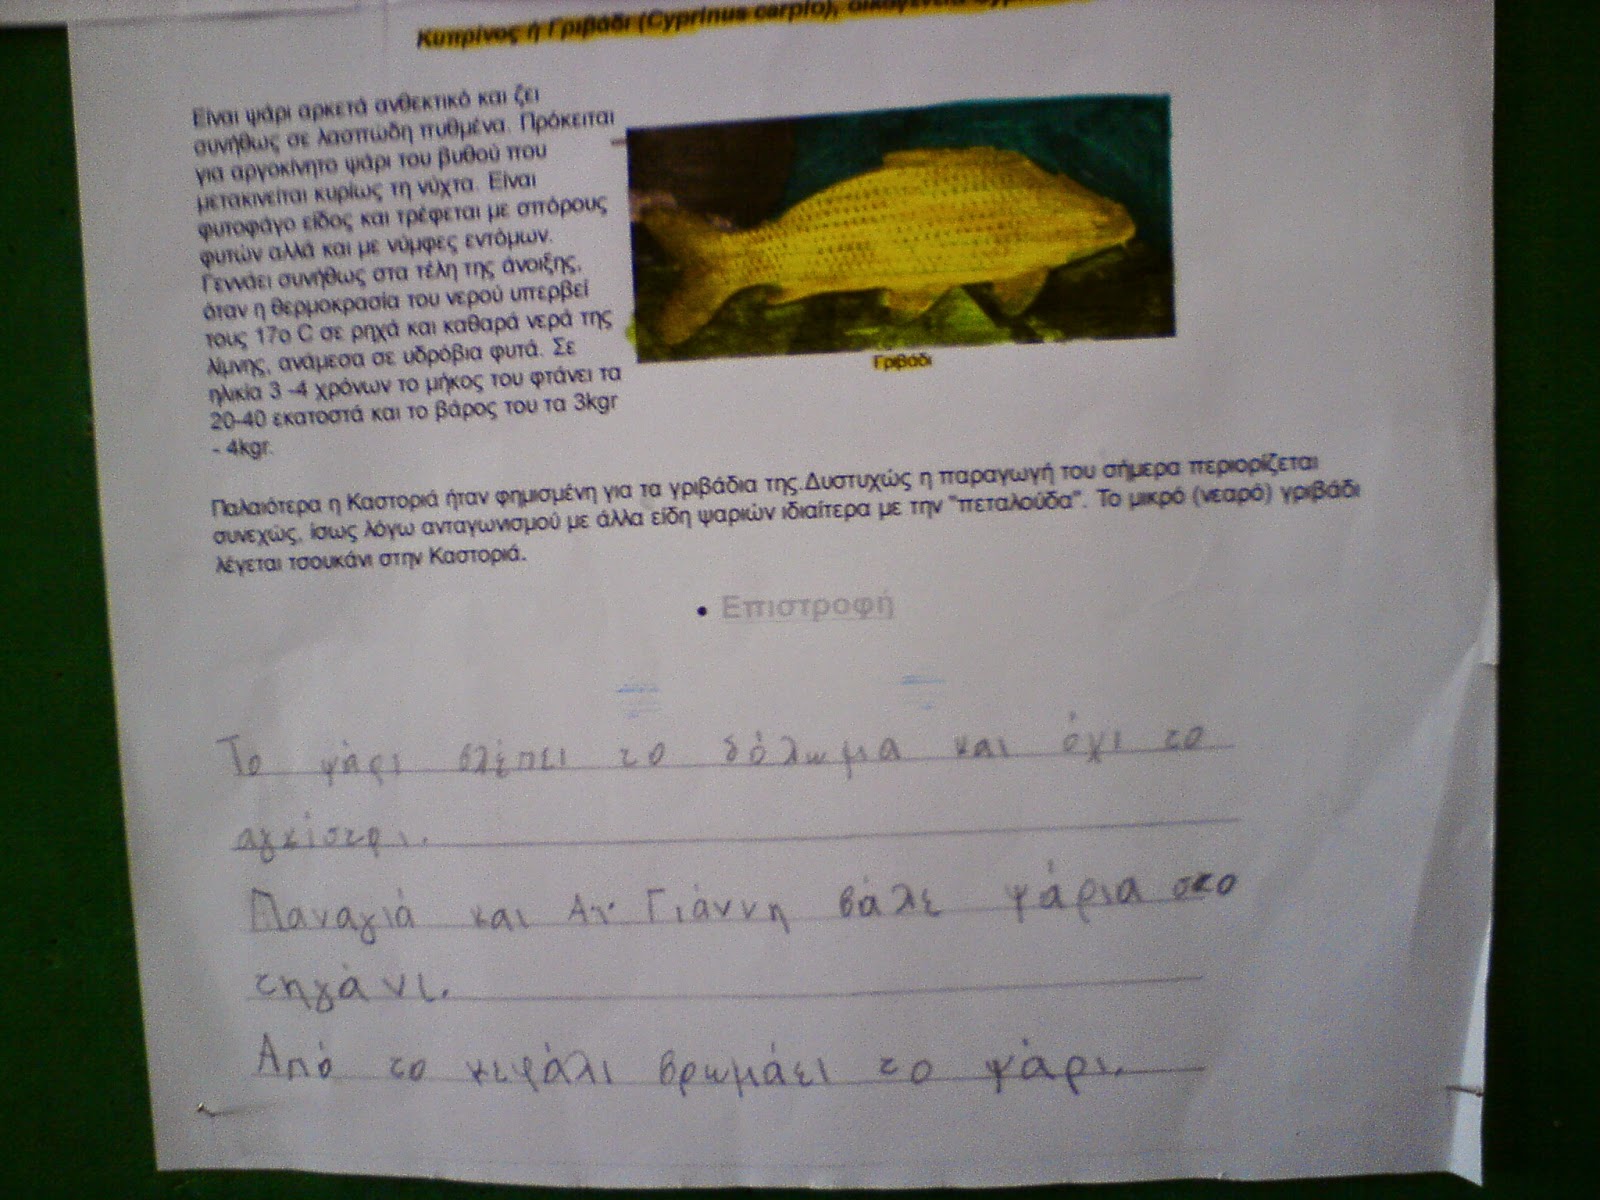 Κυπρίνος ή Γριβάδι (Cyprinus carpio), οικογένεια
Είναι ψάρι αρκετά ανθεκτικό και ζει
συνήθως σε λασπώδη πυθμένα. Πρόκειται
για αργοκίνητο ψάρι του βυθού που
μετακινείται κυρίως τη νύχτα. Είναι
φυτοφάγο είδος και τρέφεται με σπόρους
φυτών αλλά και με νύμφες εντόμων.
Γεννάει συνήθως στα τέλη της άνοιξης,
όταν η θερμοκρασία του νερού υπερβεί
τους 17ο C σε ρηχά και καθαρά νερά της
λίμνης, ανάμεσα σε υδρόβια φυτά. Σε
ηλικία 3 -4 χρόνων το μήκος του φτάνει τα
20-40 εκατοστά και το βάρος του τα 3kgr
- 4kgr.
Γριβάδι
Παλαιότερα η Καστοριά ήταν φημισμένη για τα γριβάδια της.Δυστυχώς η παραγωγή του σήμερα περιορίζεται
συνεχώς, ίσως λόγω ανταγωνισμού με άλλα είδη ψαριών ιδιαίτερα με την "πεταλούδα". Το μικρό (νεαρό) γριβάδι
λέγεται τσουκάνι στην Καστοριά.
• Επιστροφή
Το ψάρι βλέπει το δόλωμα και όχι το
αγκίστρι.
Παναγιά και Αϊ Γιάννη βάλε ψάρια στο
τηγάνι.
Από το κεφάλι βρωμάει το ψάρι.